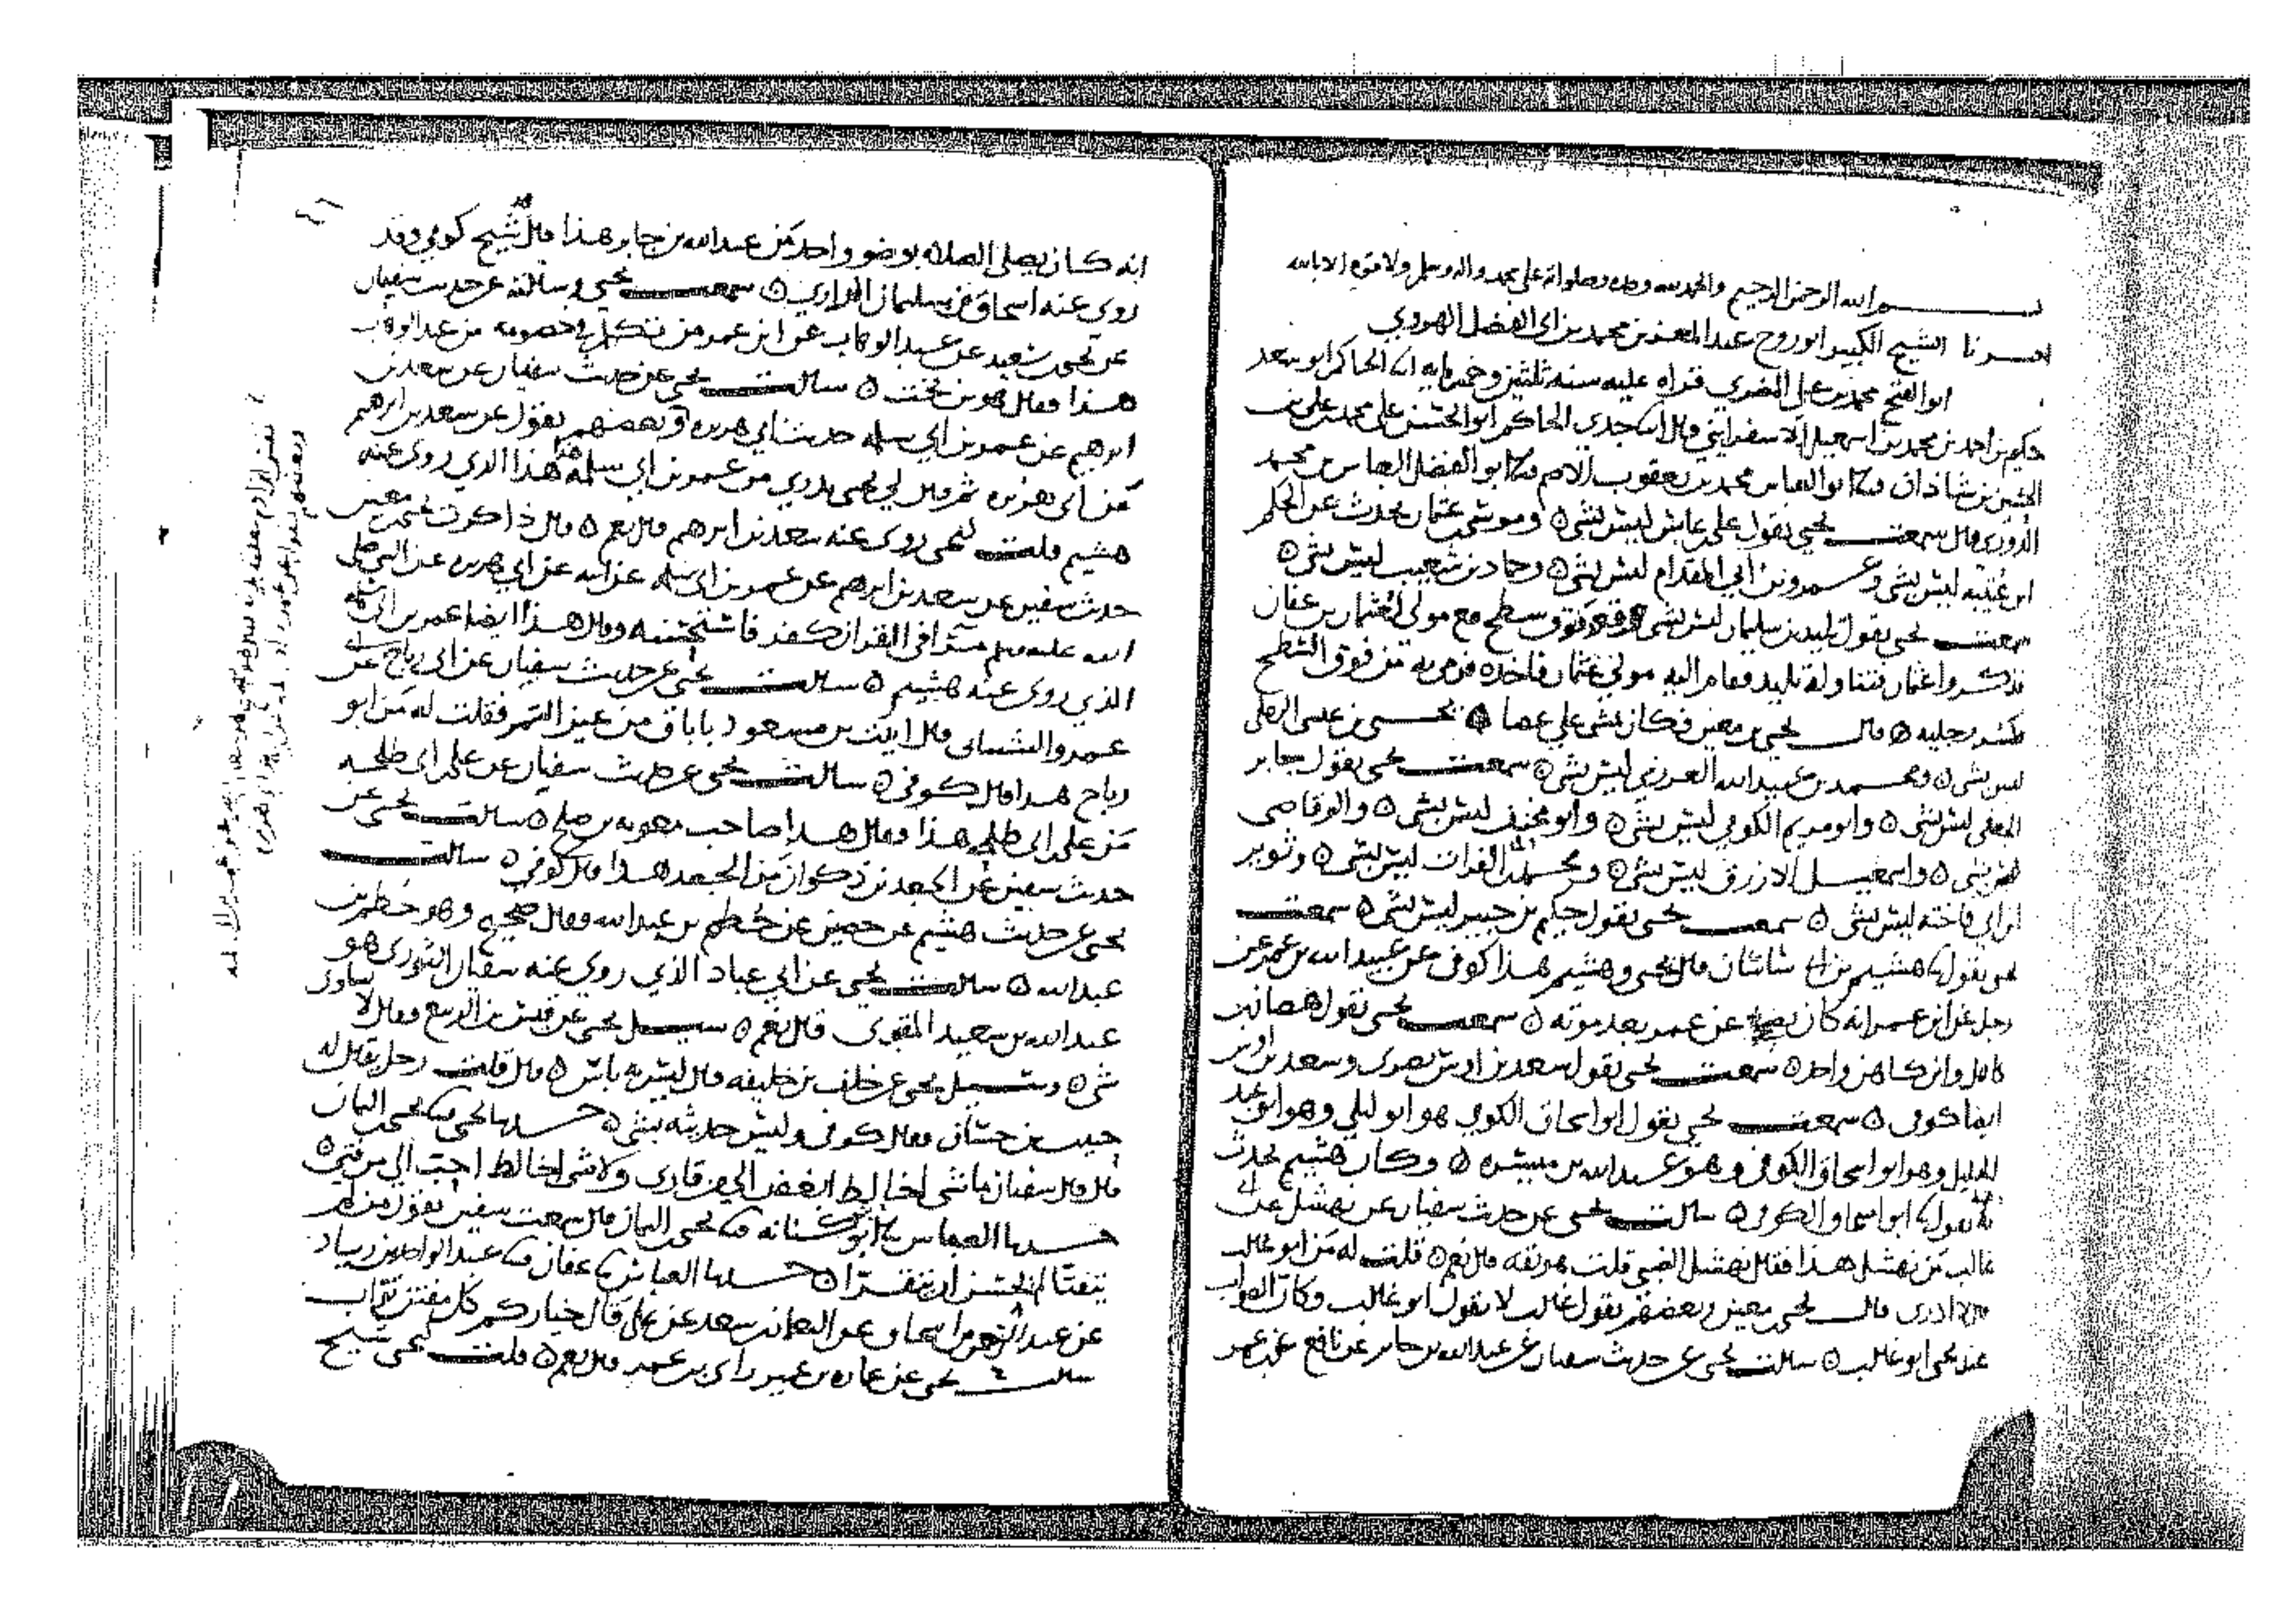 بسم الله الرحمن الرحيم والحمد لله وحده وصلواته على محمد واله وسلم ولا قوة الا بالله
اخبرنا الشيخ الكبير ابو روح عبد المعز بن محمد بن ابى الفضل الهروي
ابو الفتح محمد بن علي المضري قراه عليه سنه ثلثين وخمس مايه الحاكم ابو سعد
حكيم بن احمد بن محمد بن اسمعيل الاسفرايني قال جدي الحاكم ابو الحسن علي محمد بن علي بن
الحسين بن شاذان ابو العباس محمد بن يعقوب الاصم ابو الفضل العباس بن محمد
الدوري قال سمعت يحيى يقول على عابس ليس بشى ٥ وموسى عثمان يحدث عن الحكم
ابن عتيبه ليس بشى وعمرو بن ابي المقدام ليس بشى ٥ وحماد بن شعيب ليس بشى ٥
سمعت يحيى يقول تليد بن سليمان ليس بشى قعد فوق سطح مع مولى لعثمان بن عفان
فذكروا عثمان فتناوله تليد فقام اليه مولى عثمان فاخذه فرمى به من فوق السطح
فكسر رجليه ٥ قال يحيى بن معين فكان يمشى على عصا ٥ يحيى بن يعلى
ليس بشى ٥ ومحمد بن عبيد الله العرزمي ليس بشى ٥ سمعت يحيى يقول جابر
الجعفي ليس بشى ٥ وابو مريم الكوفي ليس بشى ٥ وابو مخنف ليس بشى ٥ والوقاصي
ليس بشى ٥ واسمعيل الازرق ليس بشى ٥ ومحمد بن الفرات ليس بشى ٥ وثوير
ابن ابي فاخته ليس بشى ٥ سمعت يحيى يقول حكيم بن جبير ليس بشى ٥ سمعت
يحيى يقول هشيم بن ساسان قال يحيى وهشيم هذا كوفى عن عبيد الله بن عمر عن
رجل عن ابن عمر انه كان عن عمر بعد موته ٥ سمعت يحيى يقول هصان بن
كاهل وابن كاهن واحد ٥ سمعت يحيى يقول سعد بن اوس بصرى وسعد بن اوس
ايضا كوفى ٥ سمعت يحيى يقول ابو اسحاق الكوفي هو ابو ليلى وهو ابو عبد
الجليل وهو ابو اسحاق الكوفى وهو عبد الله بن ميسره ٥ وكان هشيم يحدث
يقول ابو اسحاق الكوفى ٥ سالت يحيى عن حديث سفيان عن نهشل عن
غالب من نهشل هذا فقال نهشل الضبي قلت هو ثقه قال نعم ٥ قلت له من ابو غالب
قال لا ادرى قال يحيى بن معين وبعضهم يقول غالب لا يقول ابو غالب وكان الصواب
عند يحيى ابو غالب ٥ سالت يحيى عن حديث سفيان عن عبد الله بن جابر عن نافع عن عمر
انه كان يصلى الصلاه بوضو واحد من عبد الله بن جابر هذا قال شيخ كوفي وقد
روى عنه اسحاق بن سليمان الرازي ٥ سمعت يحيى وسالته عن حديث سفيان
عن يحيى بن سعيد عن عبد الوهاب عن ابن عمر من تكلم في خصومه من عبد الوهاب
هذا فقال هو بن بخت ٥ سالت يحيى عن حديث سفيان عن سعد بن
ابرهيم عن عمر بن ابي سلمه حديث ابي هريره وبعضهم يقول عن سعد بن ابرهيم
عن ابى هريره ثم قال لي يحيى تدري من عمر بن ابي سلمه هذا الذي روى عنه
هشيم قلت ليحيى روى عنه سعد بن ابرهيم قال نعم ٥ قال ذاكرت يحيى بن معين
حديث سفين عن سعد بن ابرهيم عن عمر بن ابى سلمه عن ابيه عن ابي هريره عن النبى صلى
الله عليه وسلم مرا فى القران كفر فاستحسنه وقال هذا ايضا عمر بن ابى سلمه
الذي روى عنه هشيم ٥ سالت يحيى عن حديث سفيان عن ابى رياح عن ابي
عمرو الشيباني قال اتيت بن مسعود باباق من عين التمر فقلت له من ابو
رياح هذا قال كوفى ٥ سالت يحيى عن حديث سفيان عن على ابى طلحه
من على ابى طلحه هذا فقال هذا صاحب معويه بن صلح ٥ سالت يحيى عن
حديث سفين عن الجعد بن ذكوان من الجعد هذا قال كوفى ٥ سالت
يحيى عن حديث هشيم عن حصين عن خطيم بن عبد الله فقال صحيح وهو خطيم بن
عبد الله ٥ سالت يحيى عن ابي عباد الذي روى عنه سفيان الثورى هو
عبد الله بن سعيد المقبرى قال نعم ٥ سيل يحيى عن قيس بن الربيع فقال لا يساوى
شى ٥ وسيل يحيى عن خلف بن خليفه قال ليس به باس ٥ قال قلت رجل يقال له
حبيب بن حسان فقال كوفى وليس حديثه بشى ٥ حدثنا يحيى يحيى اليمان
قال قال سفيان ما شى اخالط ابغض الي من قارى ولا شى اخالط احب الي من فتى ٥
حدثنا العباس ابو كنانه يحيى اليمان قال سمعت سفين يقول من لم
يتفتا لم يحسن ان يتقرا ٥ حدثنا العباس عفان عبد الواحد بن زياد
عن عبد الرحمن اسحاق عن النعمان بن سعد عن على قال خياركم كل مفتن تواب
سالت يحيى عن عماره بن عمير راى بن عمر قال نعم ٥ قلت ليحيى شيخ